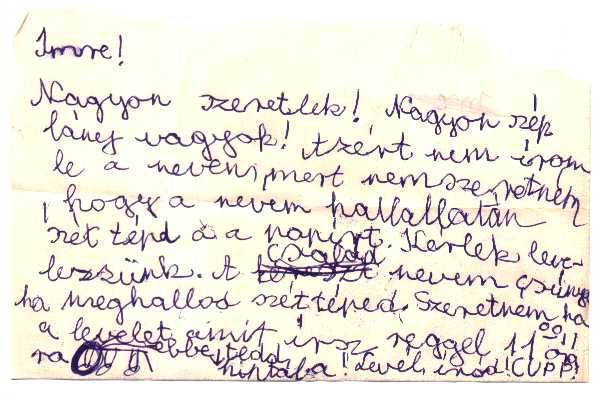 Imre!
Nagyon szeretlek! Nagyon szép
lány vagyok! Azért nem írom
le a nevem mert nem szeretném
, hogy a nevem hallallatán
szét tépd a papírt. Kérlek leve-
lezzünk. A család nevem csúnya
ha meghallod széttéped. Szeretném ha
a levelet amit írsz reggel 11
ra ebbe tedd
! Levél íród! CUPP!